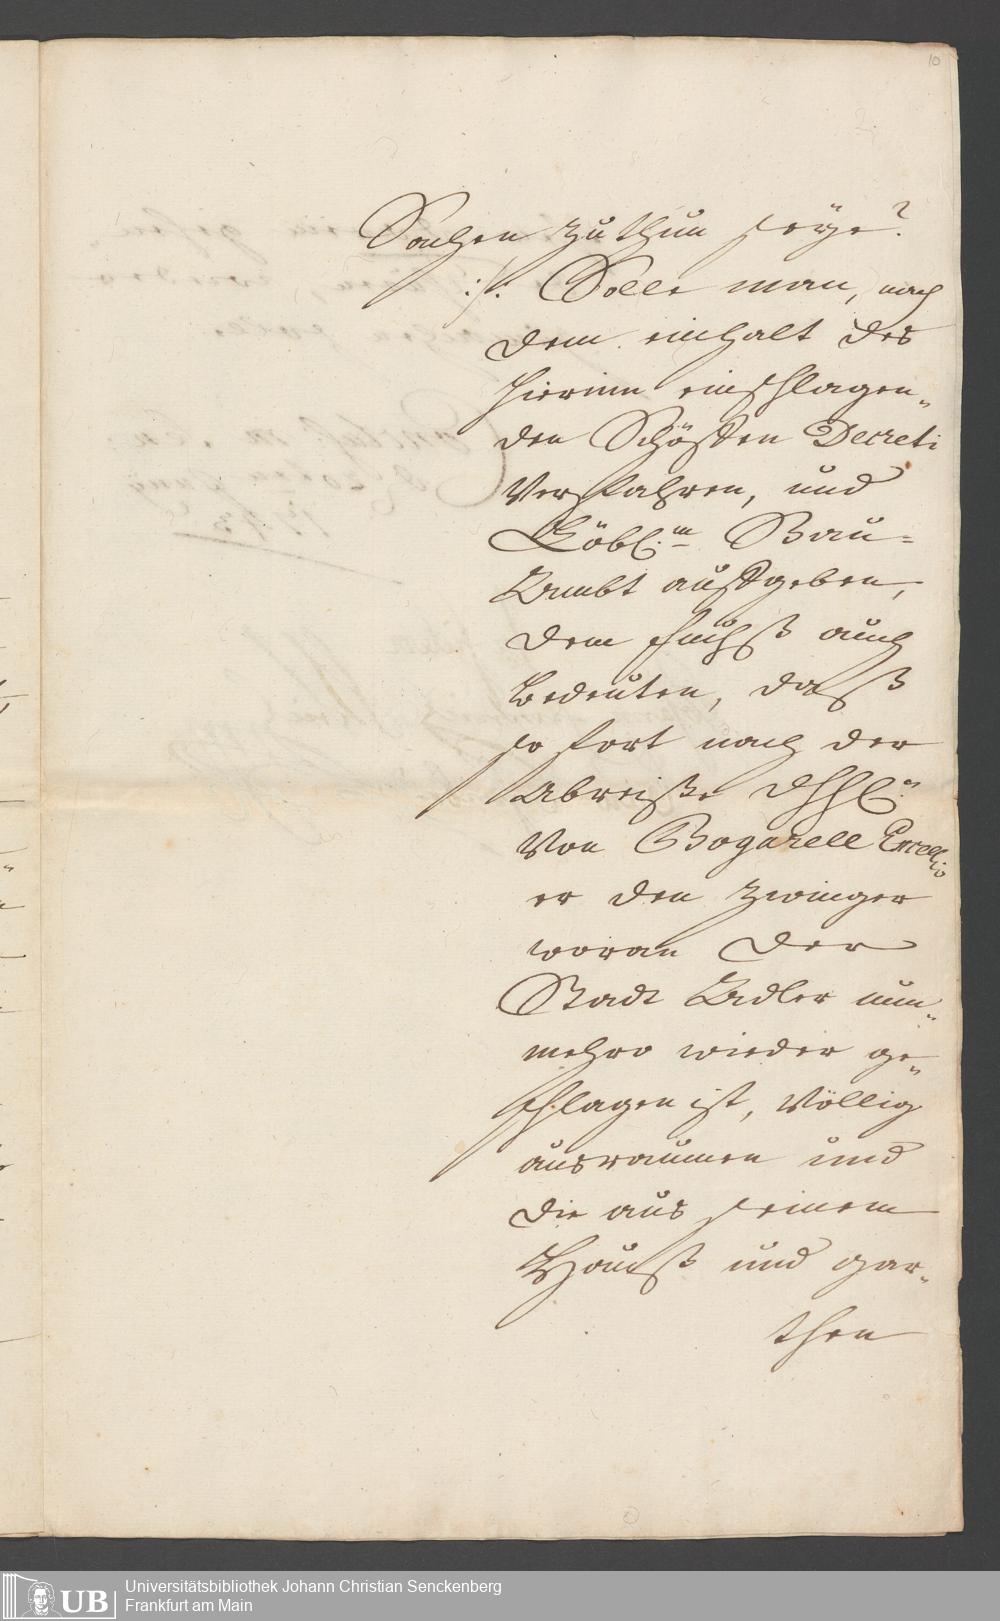 10
Sachen zuthun seÿe?
:/: Solle man, nach
dem einhalt des
hierinn einschlagen„
den Schöffen Decreti
Verfahren, und
Löbl:m Bau-
Ambt auffgeben,
dem Fuchß auch
bedeuten, daß
so fort nach der
Abreiße
Von Bogarell Excell
er den Zwinger
woran der
Stadt Adler nun„
mehro wieder ge„
schlagen ist, Völlig
ausraumen und
die aus seinem
Hauß und gar„
then
UB
Universitätsbibliothek Johann Christian Senckenberg
Frankfurt am Main